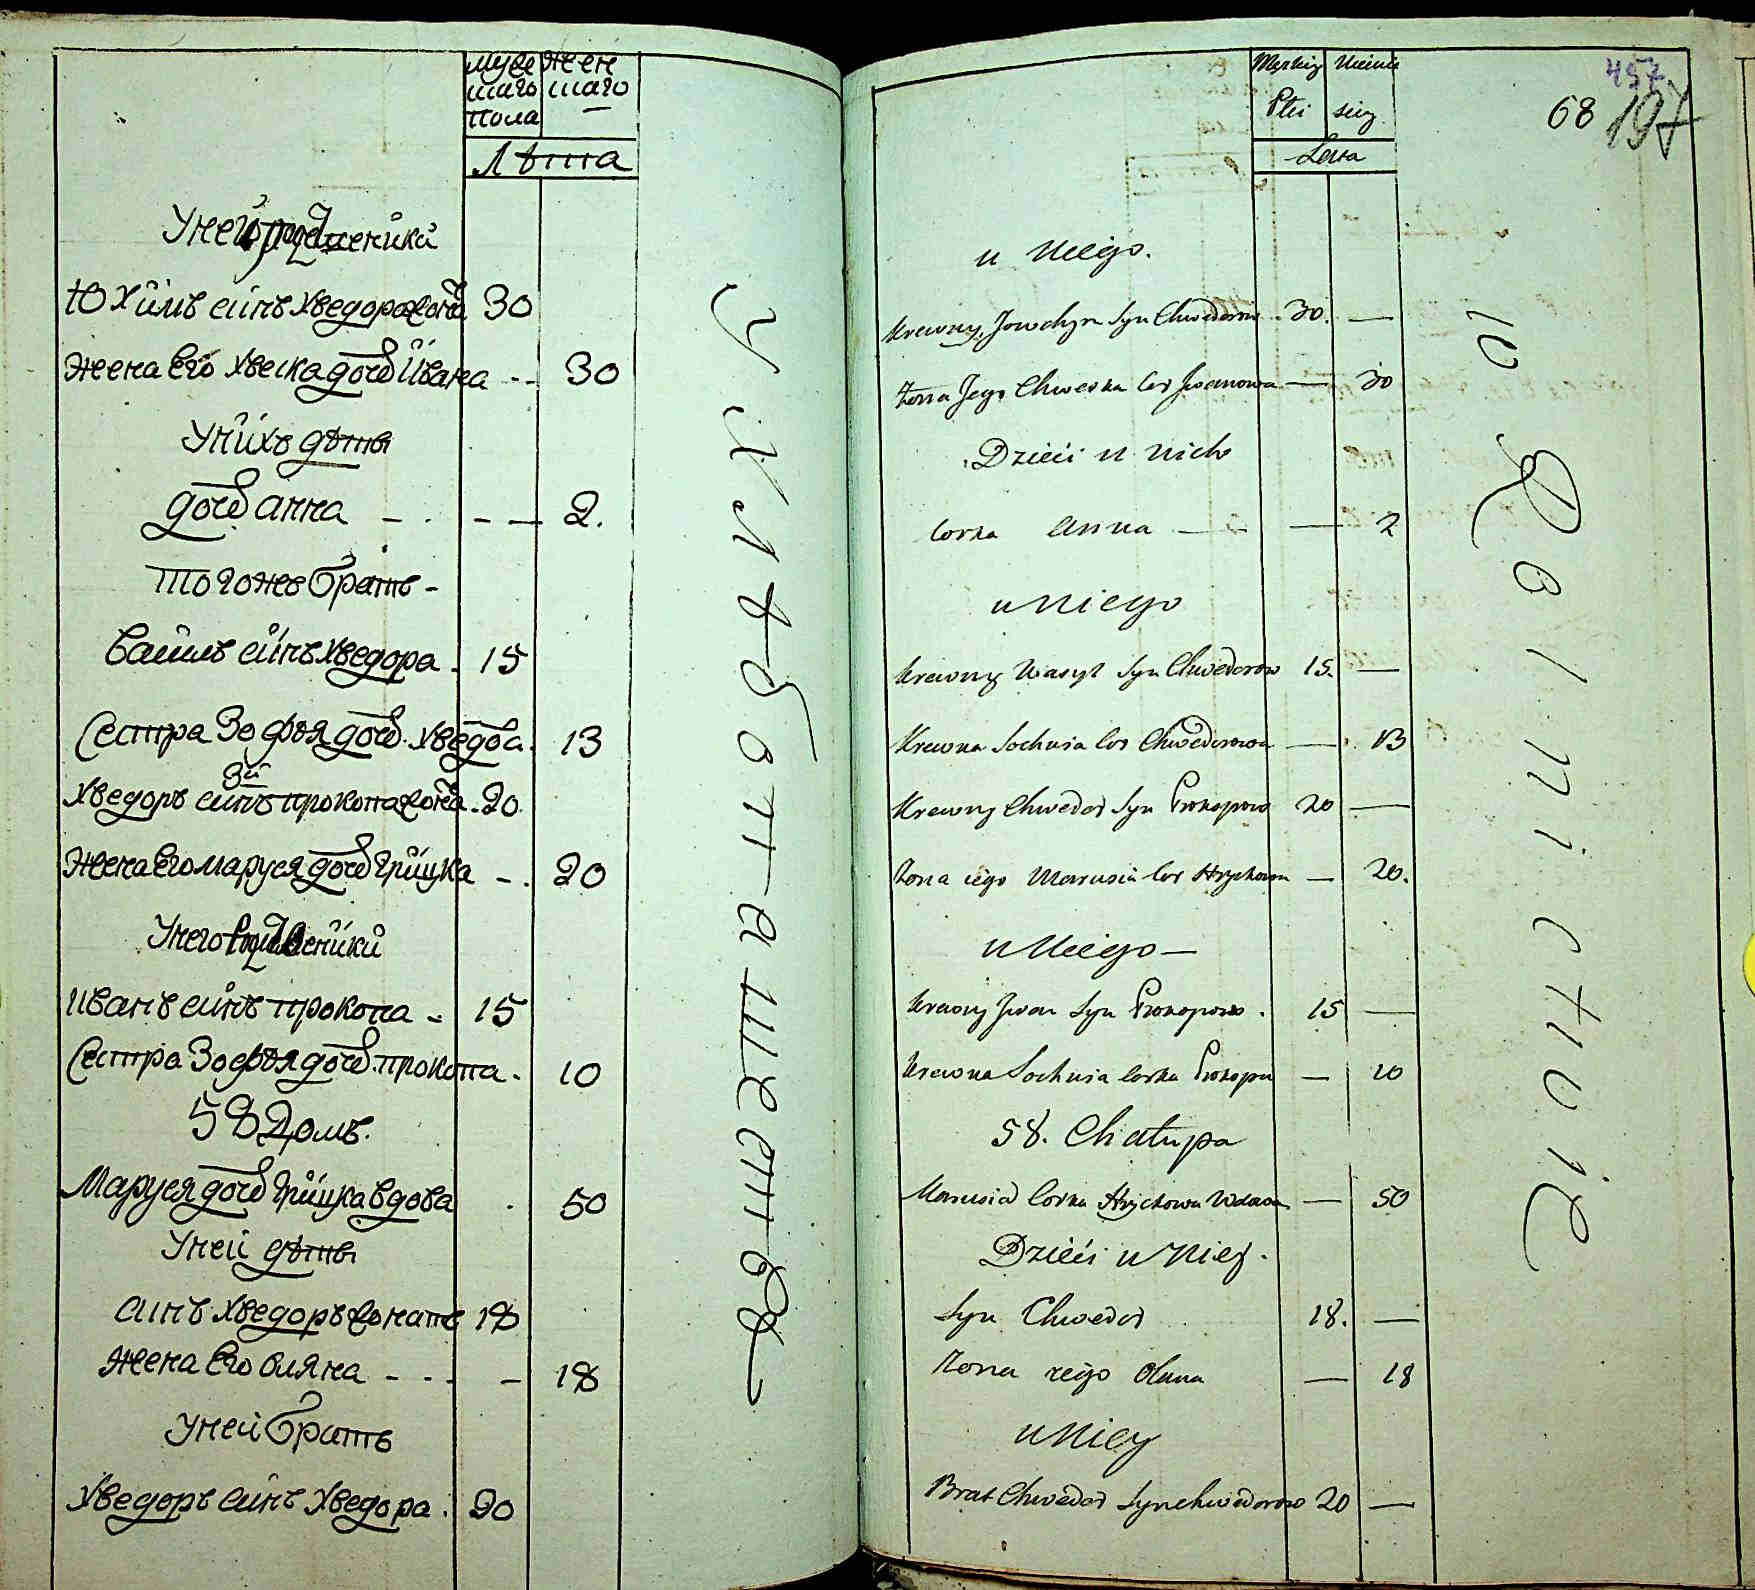 муже
шаго
пола
жен
шаго
Лѣта
У него родшеники
Юхимъ синъ хведора жонатъ 30
жена Его хвеска дочь Ивана -- 30
У нихъ дѣти
дочь анна - . - - 2.
того же братъ -
василь синъ хведора . 15
Сестра Зофѣя дочь хведора . 13
3й
хведоръ синъ прокопа жонатъ . 20.
жена Его маруся дочь Гришка - . 20
У него
иванъ синъ прокопа - 15
Сестра Зофѣя дочь прокопа . 10
58 Домъ.
Маруся дочь Гришка вдова . 50
У неи дѣти
синъ хведоръ жонатъ 18
жена Его оляна - - - - 18
У неи братъ
хведоръ синъ хведора . 20
Męzkiey
Płci
Lata
457
68 197
u Niego.
Krewny Jowchym Syn Chwedorow 30. —
Żona Jego Chweska Cor Jwanowa — 30
Dzieci u nich
Corka Anna — — 2
u Niego
Krewny Wasyl Syn Chwedorow 15. —
Krewna Sochwia Cor Chwedorowa — 13
Krewny Chwedor Syn Prokopow 20 —
Żona iego Marusia Cor Hryckowa — 20.
u Niego —
Krewny Jwan Syn Prokopow . 15 —
Krewna Sochwia Corka Prokopa — 10
58. Chałupa
Marusia Corka Hryckowa Wdowa — 50
Dzieci u Niey.
Syn Chwedor 18. —
Żona iego Olana — 18
u Niey
Brat Chwedor Syn Chwedorow 20 —